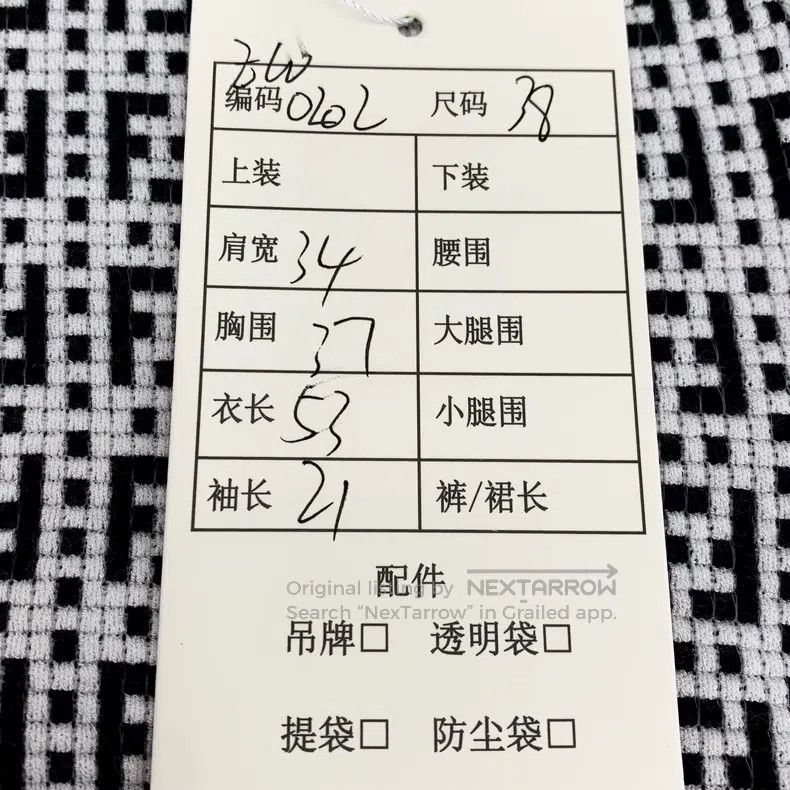 编码 0202 尺码 38
上装 下装
肩宽 34 腰围
胸围 37 大腿围
衣长 53 小腿围
袖长 21 裤/裙长
配件
Original listing by NEXTARROW
Search "NexTarrow" in Grailed app.
吊牌□ 透明袋□
提袋□ 防尘袋□